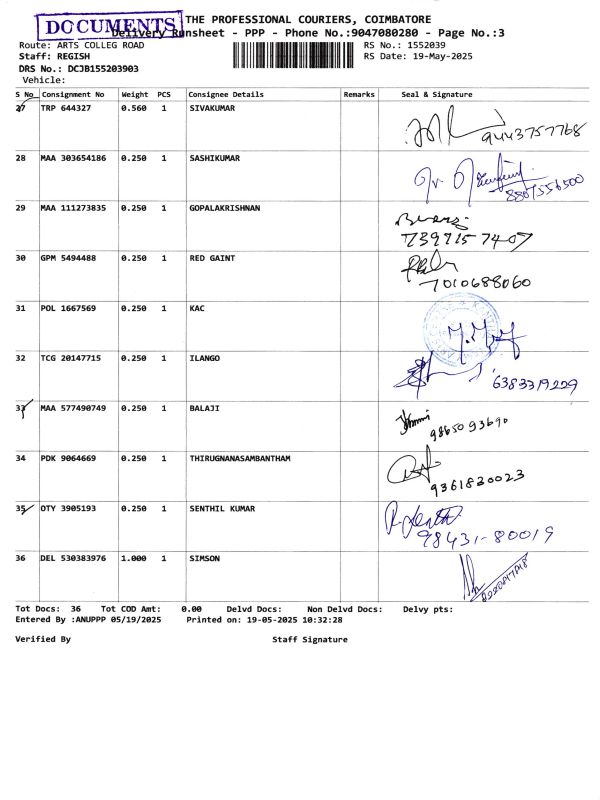 DOCUMENTS
THE PROFESSIONAL COURIERS, COIMBATORE
Delivery Runsheet - PPP - Phone No.:9047080280 - Page No.:3
Route: ARTS COLLEG ROAD RS No.: 1552039
Staff: REGISH RS Date: 19-May-2025
DRS No.: DCJB155203903
Vehicle:
S No Consignment No Weight PCS Consignee Details Remarks Seal & Signature
27 TRP 644327 0.560 1 SIVAKUMAR
9443757768
28 MAA 303654186 0.250 1 SASHIKUMAR
8807556500
29 MAA 111273835 0.250 1 GOPALAKRISHNAN
30 GPM 5494488 0.250 1 RED GAINT
7010688060
31 POL 1667569 0.250 1 KAC
32 TCG 20147715 0.250 1 ILANGO
6383319229
33 MAA 577490749 0.250 1 BALAJI
9865093690
34 PDK 9064669 0.250 1 THIRUGNANASAMBANTHAM
9361820023
35 OTY 3905193 0.250 1 SENTHIL KUMAR
98431-80019
36 DEL 530383976 1.000 1 SIMSON
Tot Docs: 36 Tot COD Amt: 0.00 Delvd Docs: Non Delvd Docs: Delvy pts:
Entered By :ANUPPP 05/19/2025 Printed on: 19-05-2025 10:32:28
Verified By Staff Signature